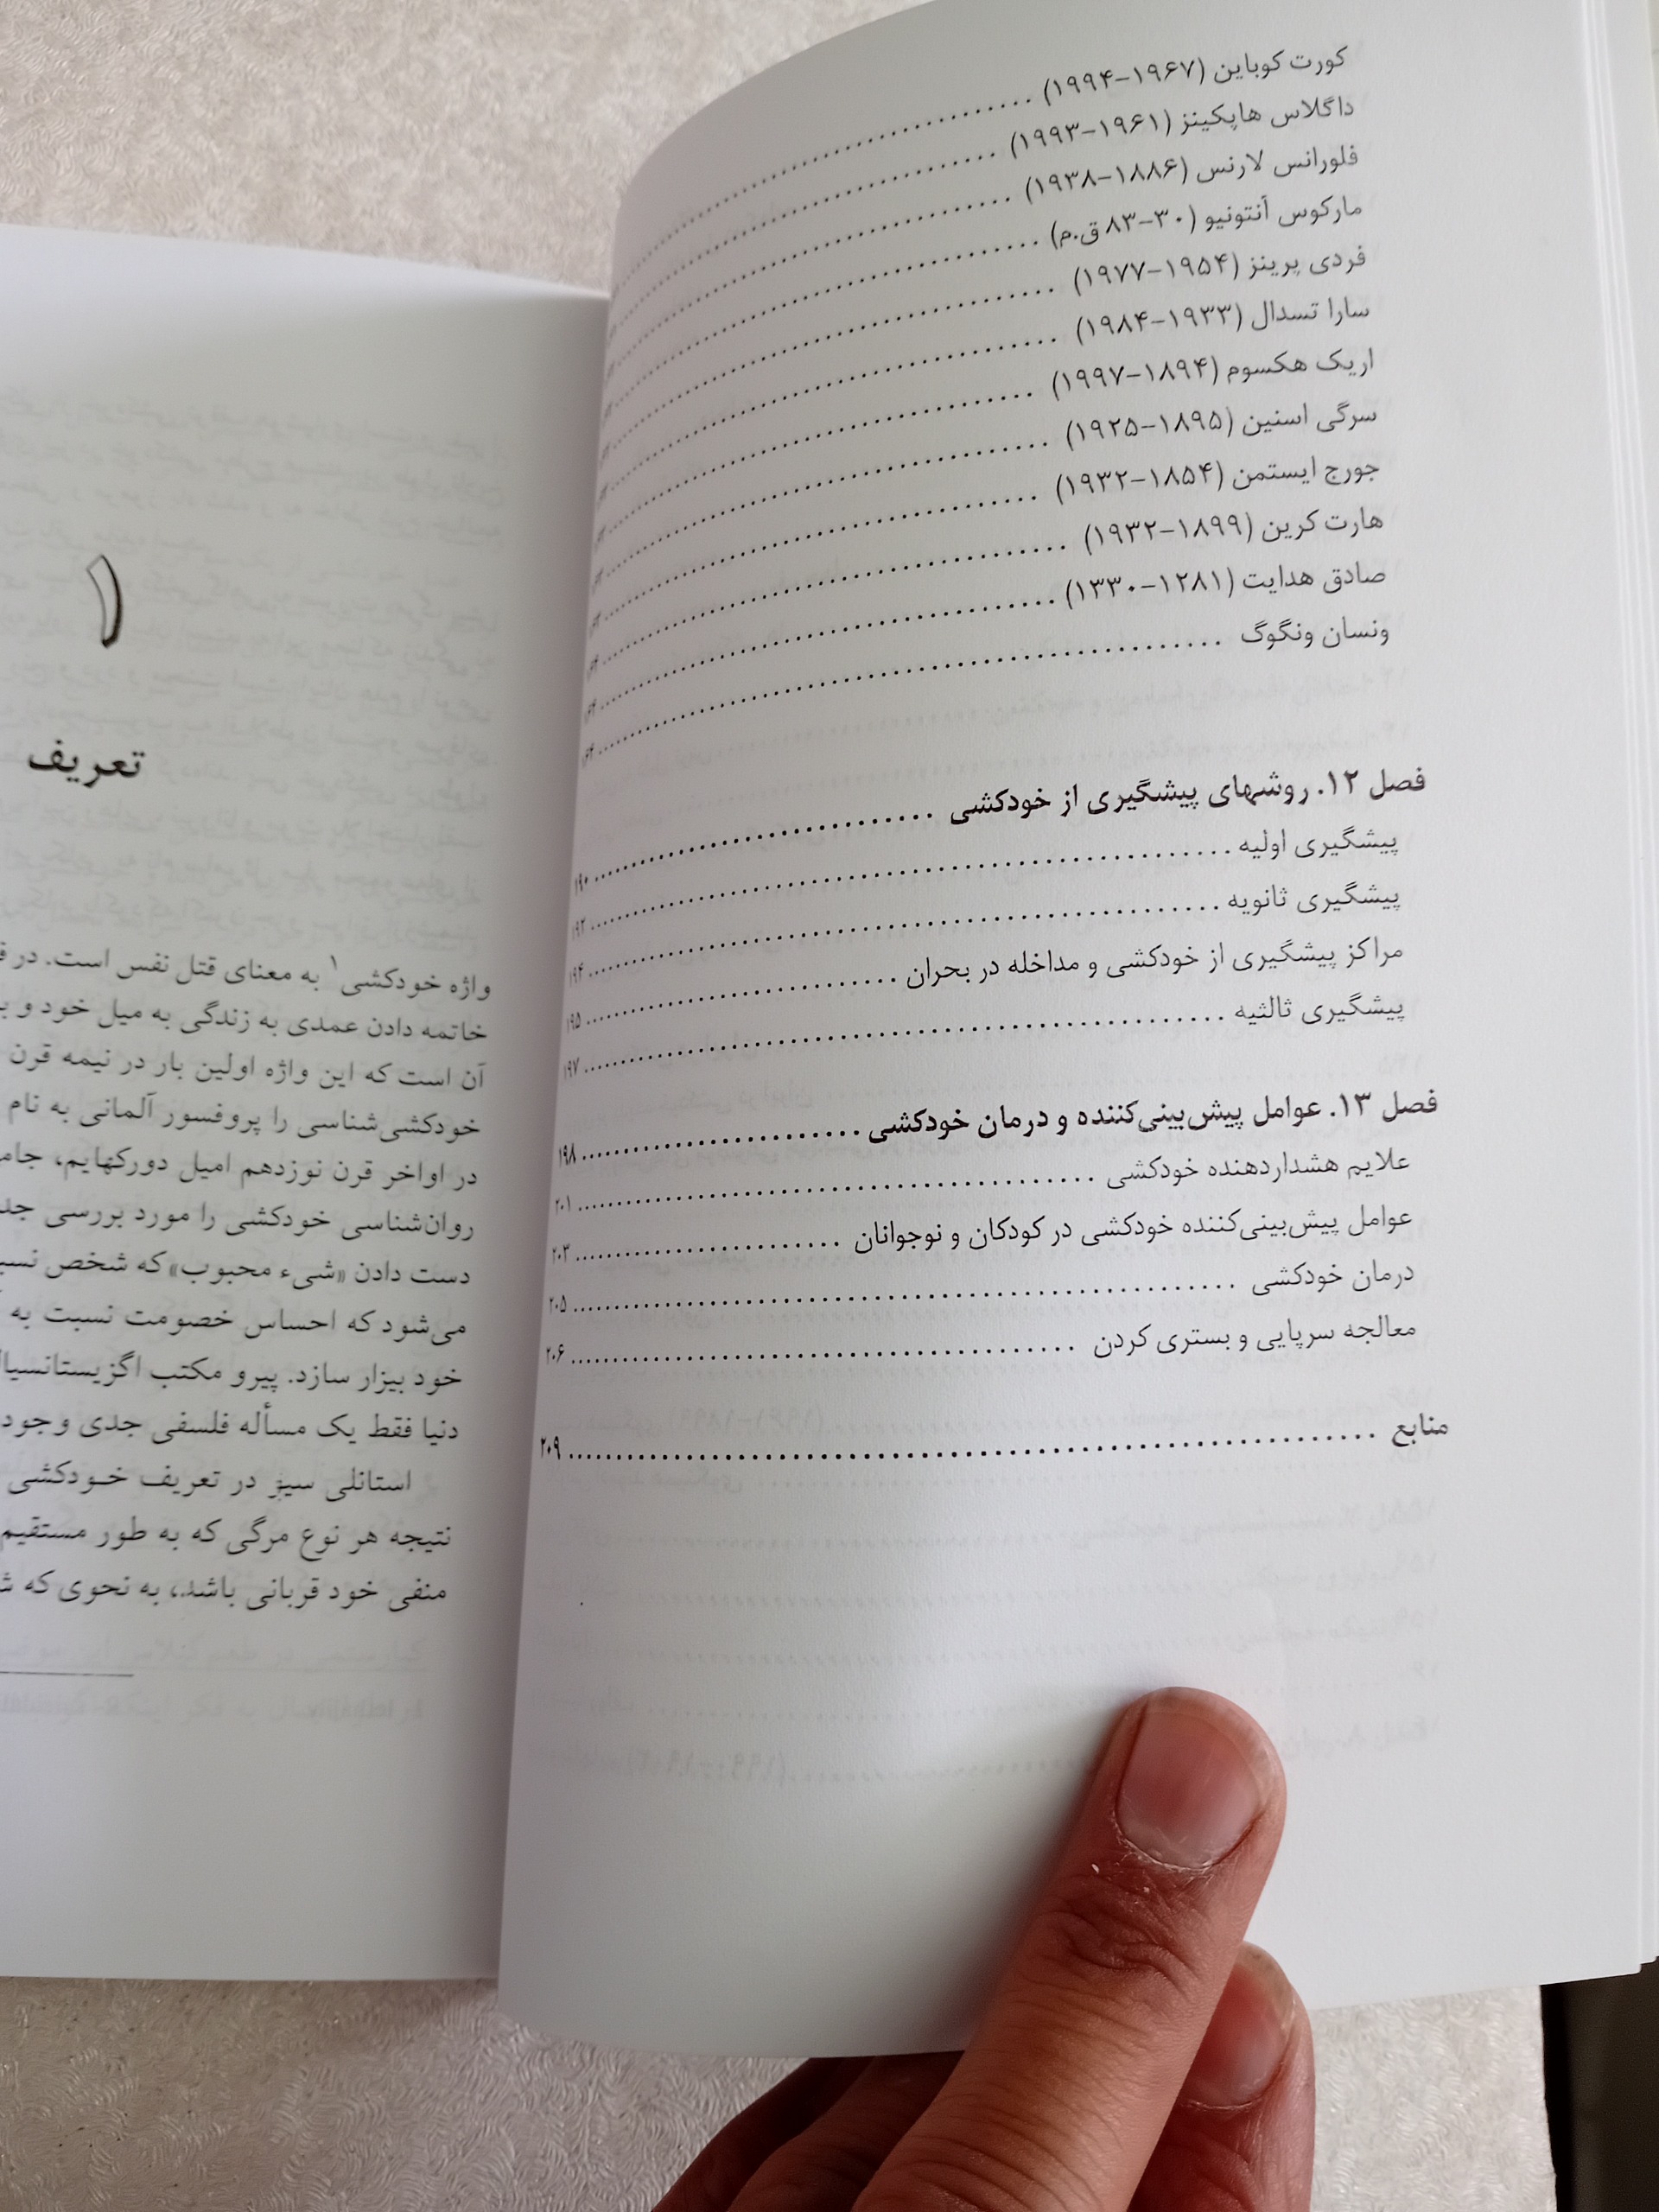 کورت کوباین (۱۹۶۷-۱۹۹۴)
داگلاس هاپکینز (۱۹۶۱-۱۹۹۳)
فلورانس لارنس (۱۸۸۶-۱۹۳۸)
مارکوس آنتونیو (۳۰-۸۳ ق.م)
فردی پرینز (۱۹۵۴-۱۹۷۷)
سارا تسدال (۱۹۳۳-۱۹۸۴)
اریک هکسوم (۱۸۹۴-۱۹۹۷)
سرگی اسنین (۱۸۹۵-۱۹۲۵)
جورج ایستمن (۱۸۵۴-۱۹۳۲)
هارت کرین (۱۸۹۹-۱۹۳۲)
صادق هدایت (۱۲۸۱-۱۳۳۰)
ونسان ونگوگ
فصل ۱۲. روشهای پیشگیری از خودکشی ........ ۱۹۰
پیشگیری اولیه ........ ۱۹۲
پیشگیری ثانویه ........ ۱۹۴
مراکز پیشگیری از خودکشی و مداخله در بحران ........ ۱۹۵
پیشگیری ثالثیه ........ ۱۹۷
فصل ۱۳. عوامل پیش‌بینی‌کننده و درمان خودکشی ........ ۱۹۸
علایم هشداردهنده خودکشی ........ ۲۰۱
عوامل پیش‌بینی‌کننده خودکشی در کودکان و نوجوانان ........ ۲۰۳
درمان خودکشی ........ ۲۰۵
معالجه سرپایی و بستری کردن ........ ۲۰۶
منابع ........ ۲۰۹
۱
تعریف
واژه خودکشی۱ به معنای قتل نفس است. در
خاتمه دادن عمدی به زندگی به میل خود و
آن است که این واژه اولین بار در نیمه قرن
خودکشی‌شناسی را پروفسور آلمانی به نام
در اواخر قرن نوزدهم امیل دورکهایم،
روان‌شناسی خودکشی را مورد بررسی
دست دادن «شیء محبوب» که شخص
می‌شود که احساس خصومت نسبت به
خود بیزار سازد. پیرو مکتب
دنیا فقط یک مسأله فلسفی جدی وجود
استانلی سیز در تعریف خودکشی
نتیجه هر نوع مرگی که به طور مستقیم
منفی خود قربانی باشد، به نحوی که